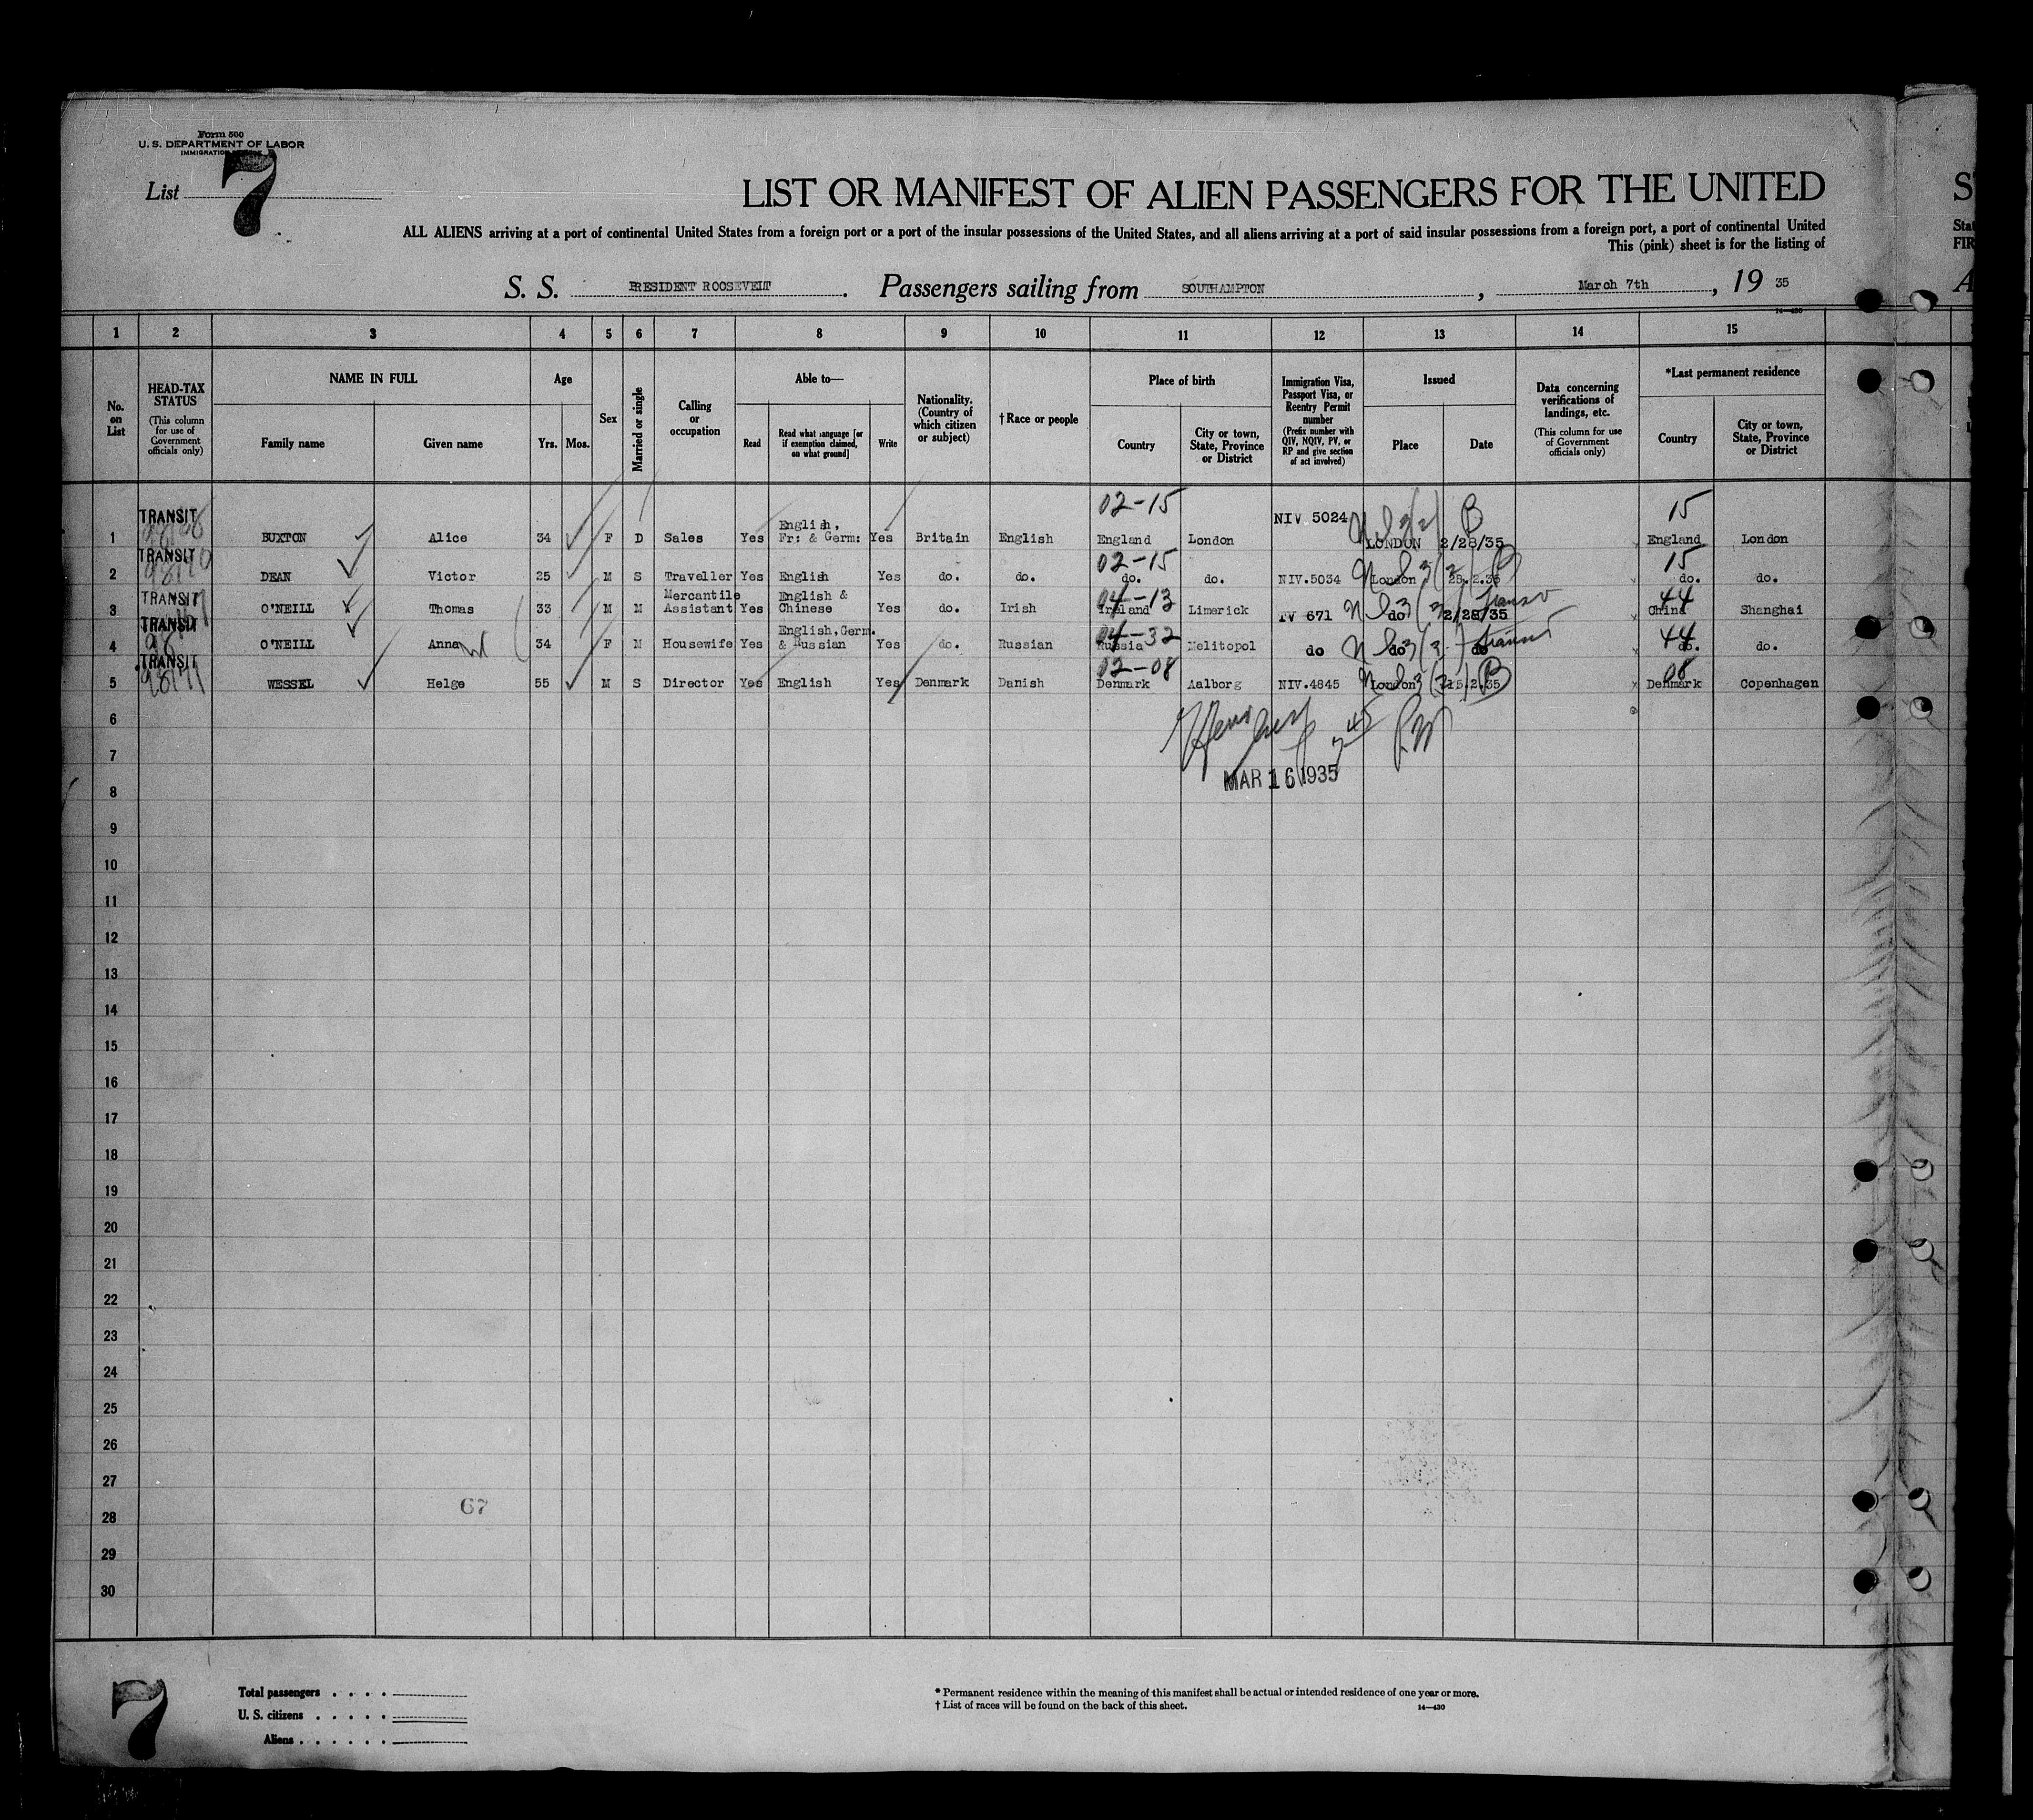 Form 500
U. S. DEPARTMENT OF LABOR
List 7
LIST OR MANIFEST OF ALIEN PASSENGERS FOR THE UNITED
ALL ALIENS arriving at a port of continental United States from a foreign port or a port of the insular possessions of the United States, and all aliens arriving at a port of said insular possessions from a foreign port, a port of continental United
This (pink) sheet is for the listing of
S. S. PRESIDENT ROOSEVELT. Passengers sailing from SOUTHAMPTON, March 7th, 19 35
14—430
1 2 3 4 5 6 7 8 9 10 11 12 13 14 15
No. on List
HEAD-TAX STATUS (This column for use of Government officials only)
NAME IN FULL
Family name
Given name
Age
Yrs. Mos.
Sex
Married or single
Calling or occupation
Able to—
Read
Read what language [or if exemption claimed, on what ground]
Write
Nationality. (Country of which citizen or subject)
†Race or people
Place of birth
Country
City or town, State, Province or District
Immigration Visa, Passport Visa, or Reentry Permit number (Prefix number with QIV, NQIV, PV, or RP and give section of act involved)
Issued
Place
Date
Data concerning verifications of landings, etc. (This column for use of Government officials only)
*Last permanent residence
Country
City or town, State, Province or District
02-15 15
1 TRANSIT BUXTON Alice 34 F D Sales Yes English, Fr: & Germ: Yes Britain English England London NIV 5024 LONDON 2/28/35 B England London
02-15 15
2 TRANSIT DEAN Victor 25 M S Traveller Yes English Yes do. do. do. do. NIV.5034 London 25.2.35 B do. do.
04-13 44
3 TRANSIT O'NEILL Thomas 33 M M Mercantile Assistant Yes English & Chinese Yes do. Irish Ireland Limerick TV 671 do 2/28/35 China Shanghai
04-32 44
4 TRANSIT O'NEILL Anna 34 F M Housewife Yes English, Germ. & Russian Yes do. Russian Russia Melitopol do do do transit do. do.
02-08 08
5 TRANSIT WESSEL Helge 55 M S Director Yes English Yes Denmark Danish Denmark Aalborg NIV.4845 London 15.2.35 B Denmark Copenhagen
6
7
MAR 16 1935
8
9
10
11
12
13
14
15
16
17
18
19
20
21
22
23
24
25
26
27
67
28
29
30
7
Total passengers
U. S. citizens
Aliens
* Permanent residence within the meaning of this manifest shall be actual or intended residence of one year or more.
† List of races will be found on the back of this sheet.
14—430